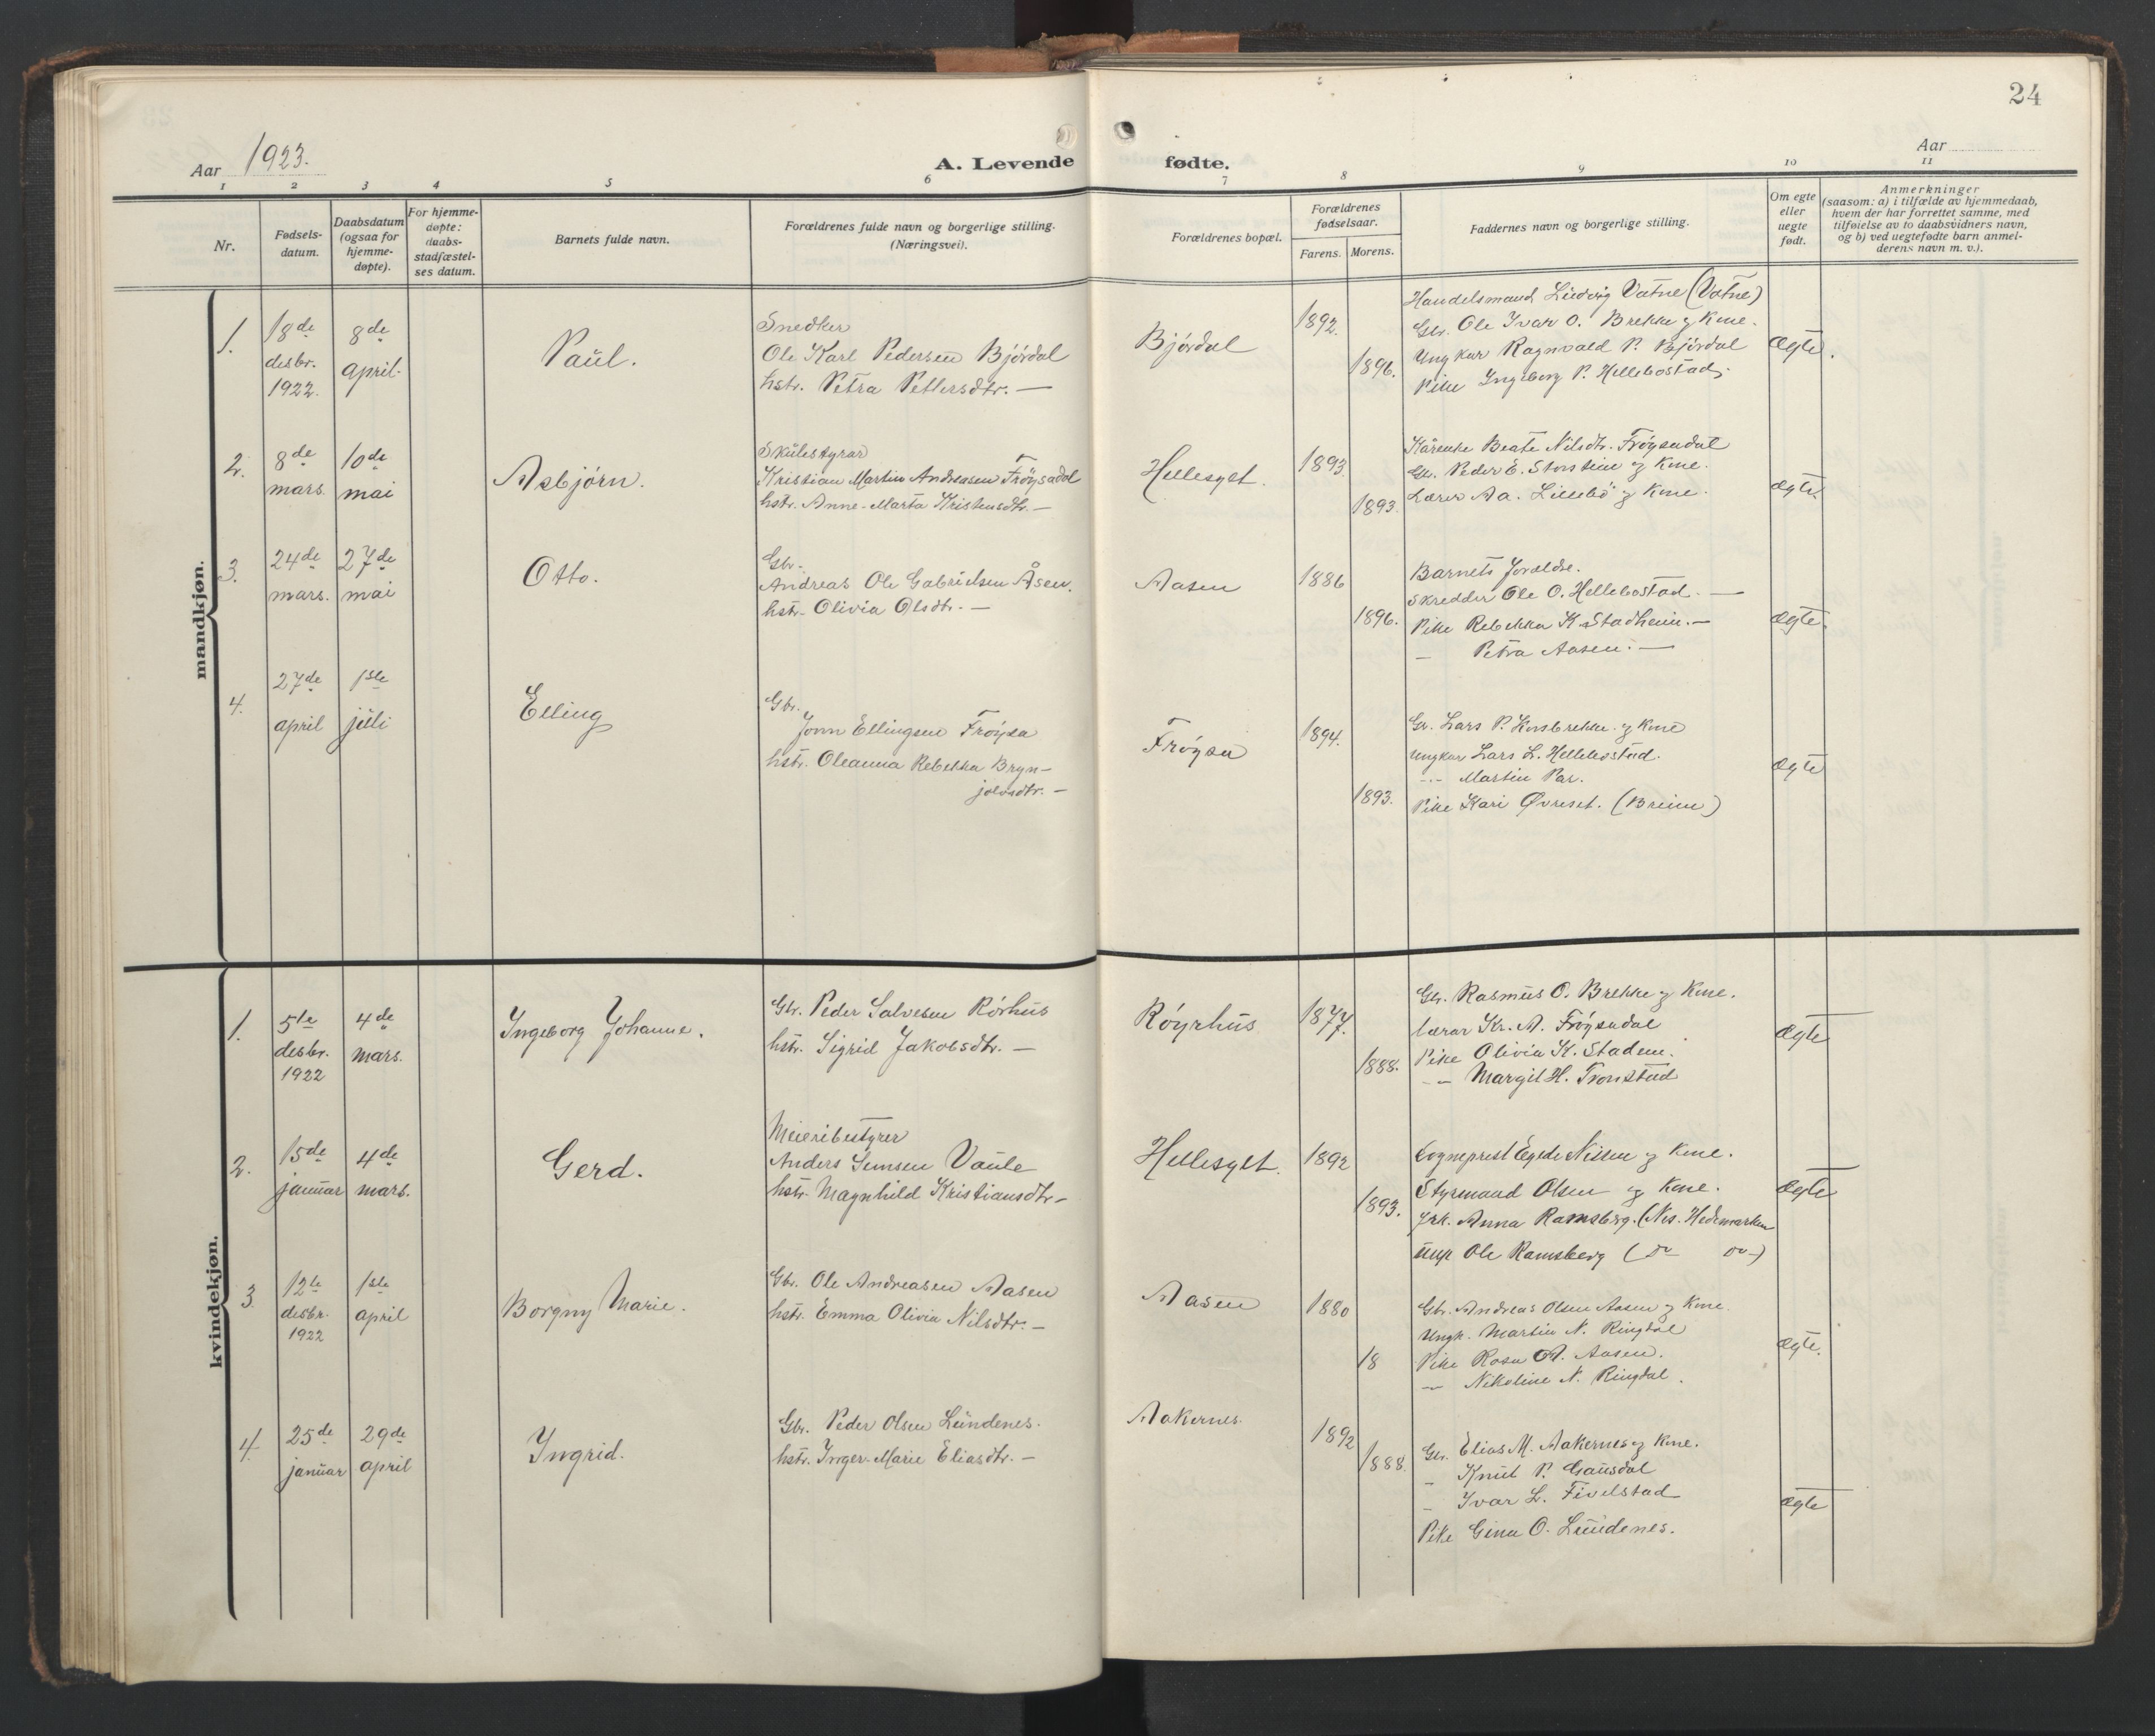 24
Aar 1923.
A. Levende fødte.
Aar
1 2 3 4 5 6 7 8 9 10 11
Nr.
Fødsels-
datum.
Daabsdatum
(ogsaa for
hjemme-
døpte).
For hjemme-
døpte:
daabs-
stadfæstel-
ses datum.
Barnets fulde navn.
Forældrenes fulde navn og borgerlige stilling.
(Næringsvei).
Forældrenes bopæl.
Forældrenes
fødselsaar.
Farens. Morens.
Faddernes navn og borgerlige stilling.
Om egte
eller
uegte
født.
Anmerkninger
(saasom: a) i tilfælde av hjemmedaab,
hvem der har forrettet samme, med
tilføielse av to daabsvidners navn,
og b) ved uegtefødte barn anmel-
derens navn m. v.).
mandkjøn.
1.
18de
desbr.
1922.
8de
april.
Paul.
Snedker
Ole Karl Pedersen Bjørdal
hstr. Petra Pettersdtr. —
Bjørdal
1892.
1896.
Handelsmand Ludvig Vatne (Vatne)
Gbr. Ole Ivar O. Brekke og Kone.
Ungkar Ragnvald P. Bjørdal
Pike Ingeborg P. Hellebostad.
Ægte.
2.
8de
mars.
10de
mai
Asbjørn.
Skulestyrar
Kristian Martin Andreasen Frøysadal
hstr. Anne-Marta Kristensdtr. —
Hellesylt.
1893
1893.
Beate Nilsdtr. Frøysadal
Gbr. Peder E. Storstein og Kone.
Lærer Aa. Lillebø og Kone.
Ægte.
3.
24de
mars.
27de
mai
Otto.
Gbr.
Andreas Ole Gabrielsen Åsen.
hstr. Olivia Olsdtr. —
Aasen
1886
1896.
Barnets foreldre.
Skredder Ole O. Hellebostad. —
Pike Rebekka K. Stadheim. —
— Petra Aasen. —
Ægte.
4.
27de
april
1ste
juli
Elling
Gbr.
Jonn Ellingsen Frøysa
hstr. Oleanna Rebekka Bryn-
jolvsdtr. —
Frøysa
1894.
1893.
Gbr. Lars P. Korsbrekke og Kone
Ungkar Lars L. Hellebostad.
-"- Martin Par.
Pike Kari Øvreset. (Breim)
Ægte
kvindekjøn.
1.
5te
desbr.
1922
4de
mars.
Ingeborg Johanne.
Gbr. Peder Salvesen Rørhus
hstr. Sigrid Jakobsdtr. —
Røyrhus
1877.
1888.
Gbr. Rasmus O. Brekke og Kone.
lærar Kr. A. Frøysadal
Pike Olivia K. Stadem.
-"- Margit H. Tronstad
Ægte
2.
15de
januar
4de
mars.
Gerd.
Meieribestyrer
Anders Semsen Vaule
hstr. Magnhild Kristiansdtr —
Hellesylt.
1892
1893.
Sogneprest Egede Nissen og Kone.
Styrmand Olsen og Kone.
Frk. Anna Ramsberg. (Nes. Hedemarken
Ole Ramsberg (do do)
Ægte
3.
12te
desbr.
1922
1ste
april
Borgny Marie.
Gbr. Ole Andreasen Aasen
hstr. Emma Olivia Nilsdtr. —
Aasen
1880
18
Gbr. Andreas Olsen Aasen og Kone.
Ungk. Martin N. Ringdal
Pike Rosa A. Aasen.
-"- Nikoline N. Ringdal.
Ægte.
4.
25de
januar
29de
april
Ingrid.
Gbr. Peder Olsen Lundenes.
hstr. Inger-Marie Eliasdtr. —
Aakernes.
1892
1888.
Gbr. Elias M. Aakernes og Kone.
- Knut P. Gausdal
- Ivar L. Fivelstad
Pike Gina O. Lundenes.
Ægte